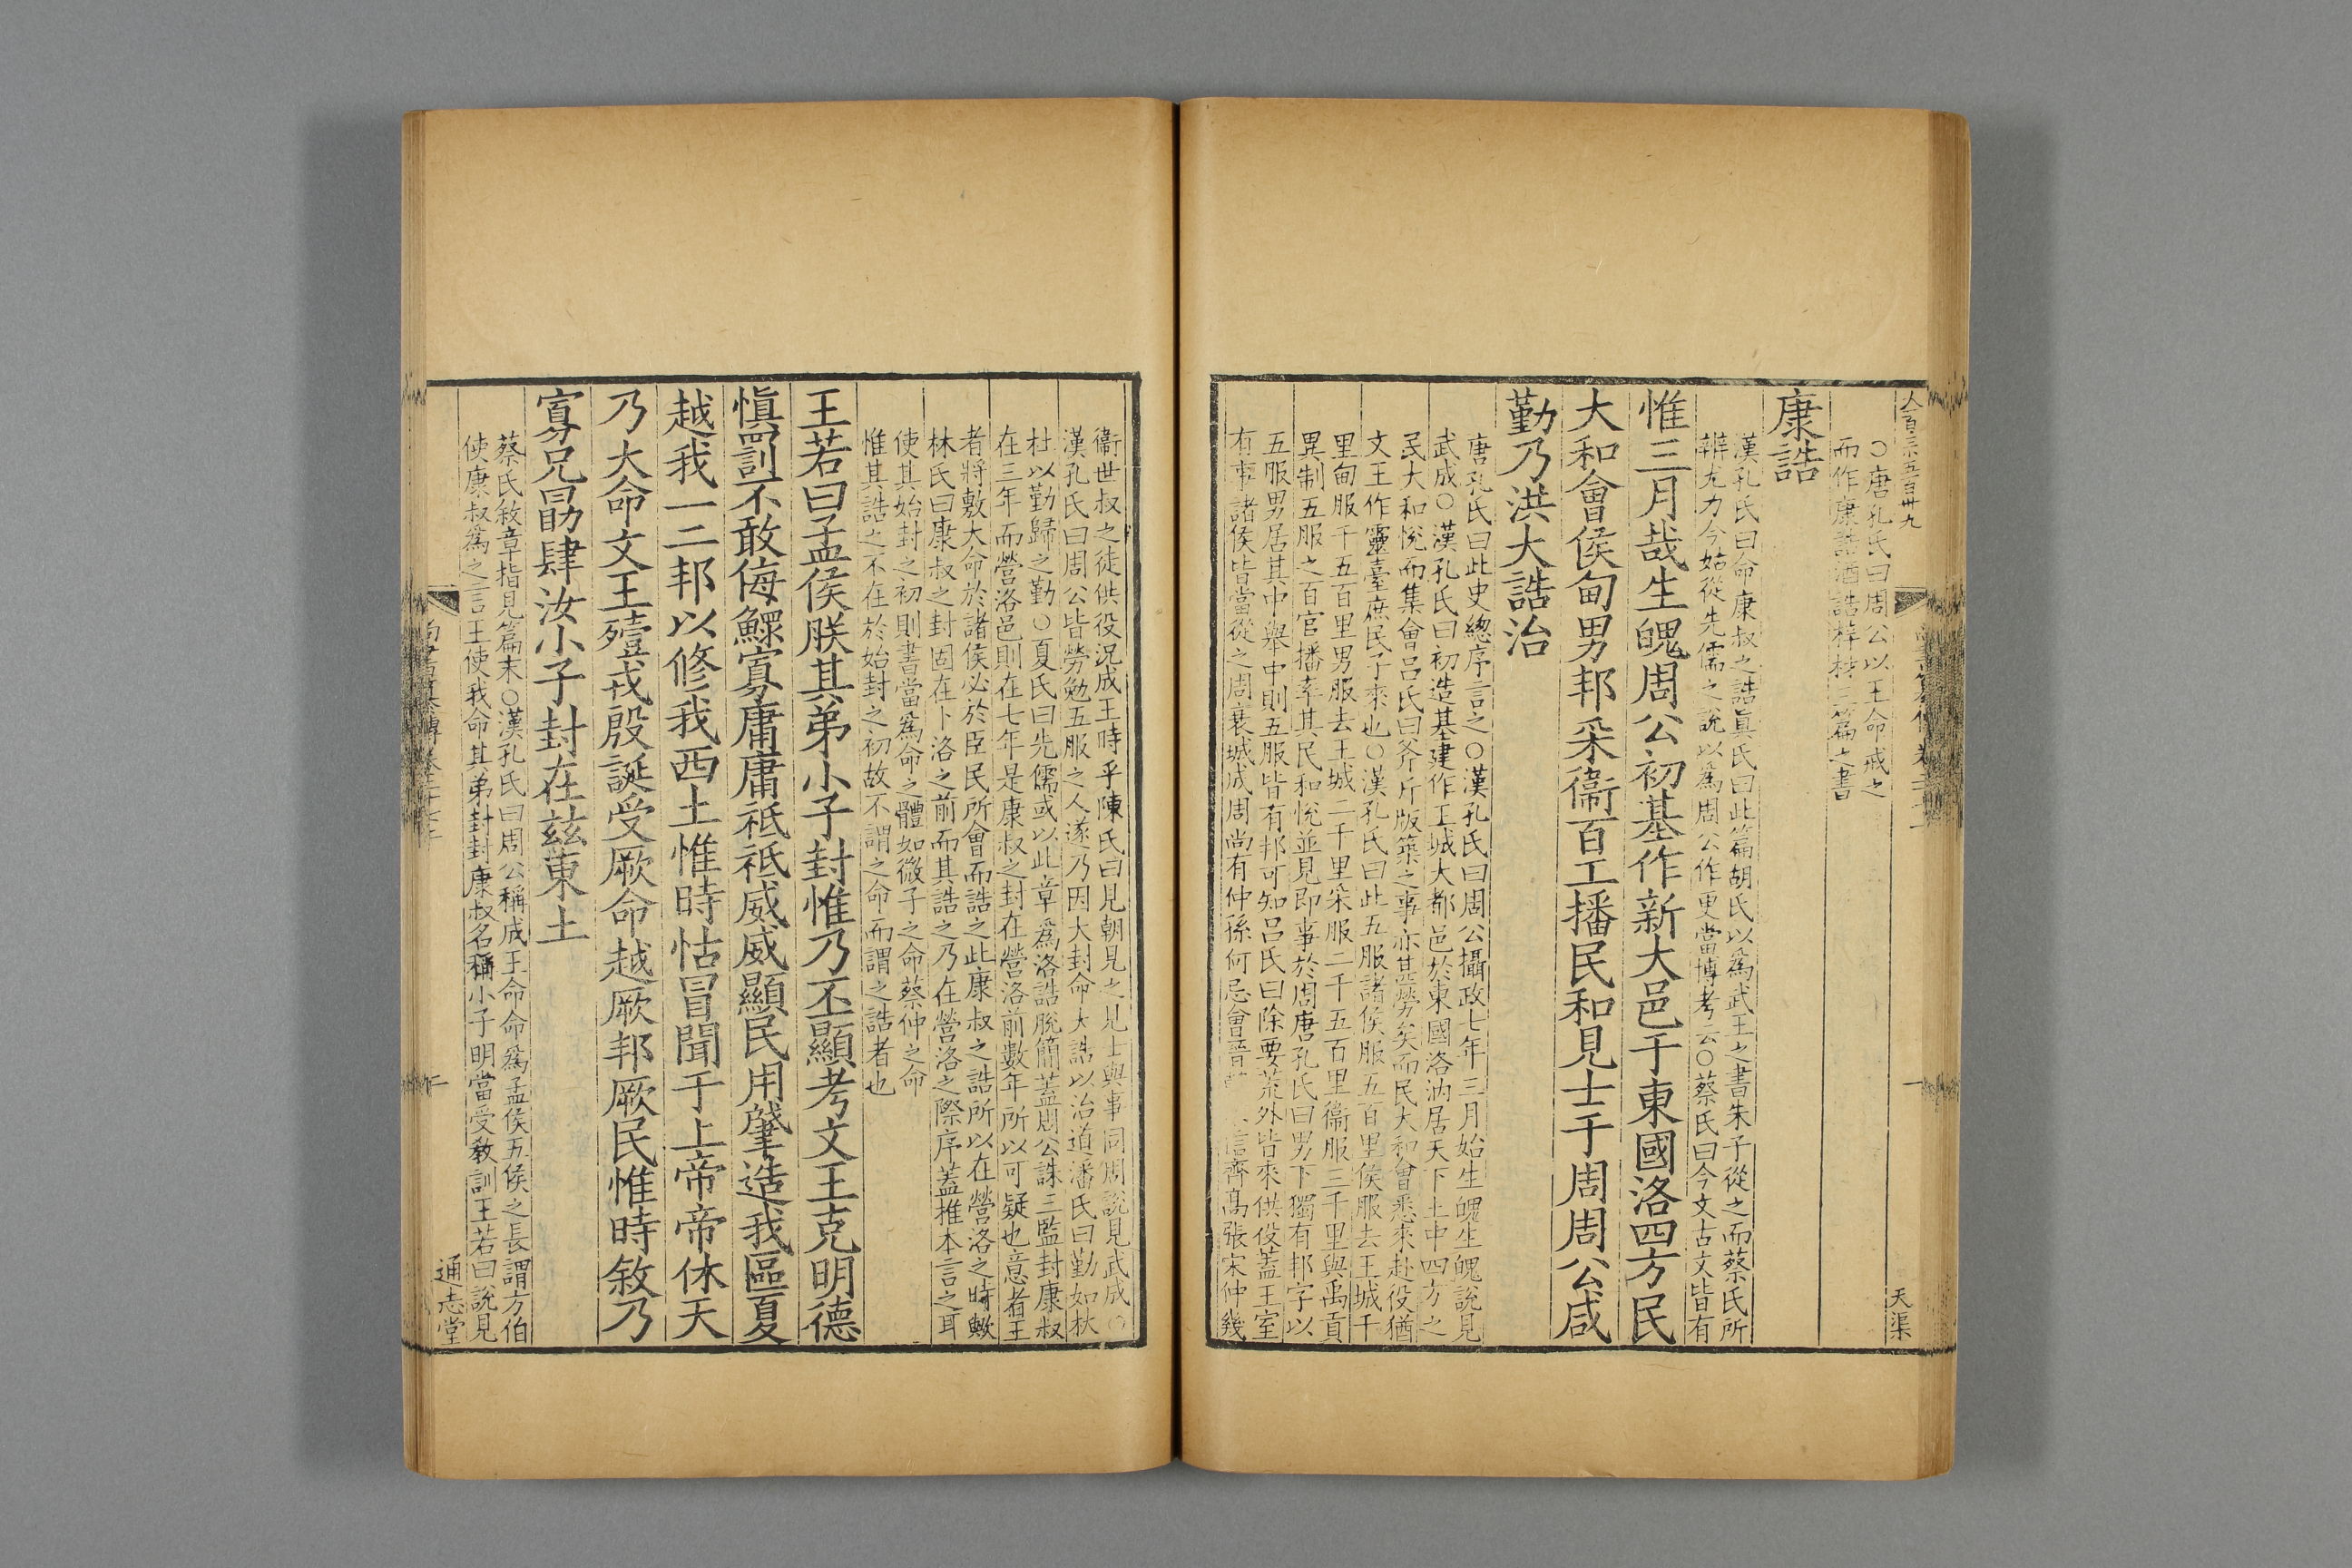 ○唐孔氏曰周公以王命戒之
而作康誥酒誥梓材三篇之書
康誥
漢孔氏曰命康叔之誥眞氏曰此篇胡氏以爲武王之書朱子從之而蔡氏所
辨尤力今姑從先儒之說以爲周公作更當博考云○蔡氏曰今文古文皆有
惟三月哉生魄周公初基作新大邑于東國洛四方民
大和會侯甸男邦采衞百工播民和見士于周周公咸
勤乃洪大誥治
唐孔氏曰此史總序言之○漢孔氏曰周公攝政七年三月始生魄生魄說見
武成○漢孔氏曰初造基建作王城大都邑於東國洛汭居天下土中四方之
民大和悅而集會呂氏曰斧斤版築之事亦甚勞矣而民大和會悉來赴役猶
文王作靈臺庶民子來也○漢孔氏曰此五服諸侯服五百里侯服去王城千
里甸服千五百里男服去王城二千里采服二千五百里衞服三千里與禹貢
異制五服之百官播率其民和悅並見即事於周唐孔氏曰男下獨有邦字以
五服男居其中舉中則五服皆有邦可知呂氏曰除要荒外皆來供役蓋王室
有事諸侯皆當從之周衰城成周尚有仲孫何忌會晉 信齊高張宋仲幾
衞世叔之徒供役況成王時乎陳氏曰見朝見之見士與事同周說見武成○
漢孔氏曰周公皆勞勉五服之人遂乃因大封命大誥以治道潘氏曰勤如杕
杜以勤歸之勤○夏氏曰先儒或以此章爲洛誥脫簡蓋周公誅三監封康叔
在三年而營洛邑則在七年是康叔之封在營洛前數年所以可疑也意者王
者將敷大命於諸侯必於臣民所會而誥之此康叔之誥所以在營洛之時歟
林氏曰康叔之封固在卜洛之前而其誥之乃在營洛之際序蓋推本言之耳
使其始封之初則書當爲命之體如微子之命蔡仲之命
惟其誥之不在於始封之初故不謂之命而謂之誥者也
王若曰孟侯朕其弟小子封惟乃丕顯考文王克明德
愼罰不敢侮鰥寡庸庸祗祗威威顯民用肇造我區夏
越我一二邦以修我西土惟時怙冒聞于上帝帝休天
乃大命文王殪戎殷誕受厥命越厥邦厥民惟時敘乃
寡兄勗肆汝小子封在茲東土
蔡氏敘章指見篇末○漢孔氏曰周公稱成王命命爲孟侯五侯之長謂方伯
使康叔爲之言王使我命其弟封封康叔名稱小子明當受敎訓王若曰說見
通志堂
天渠